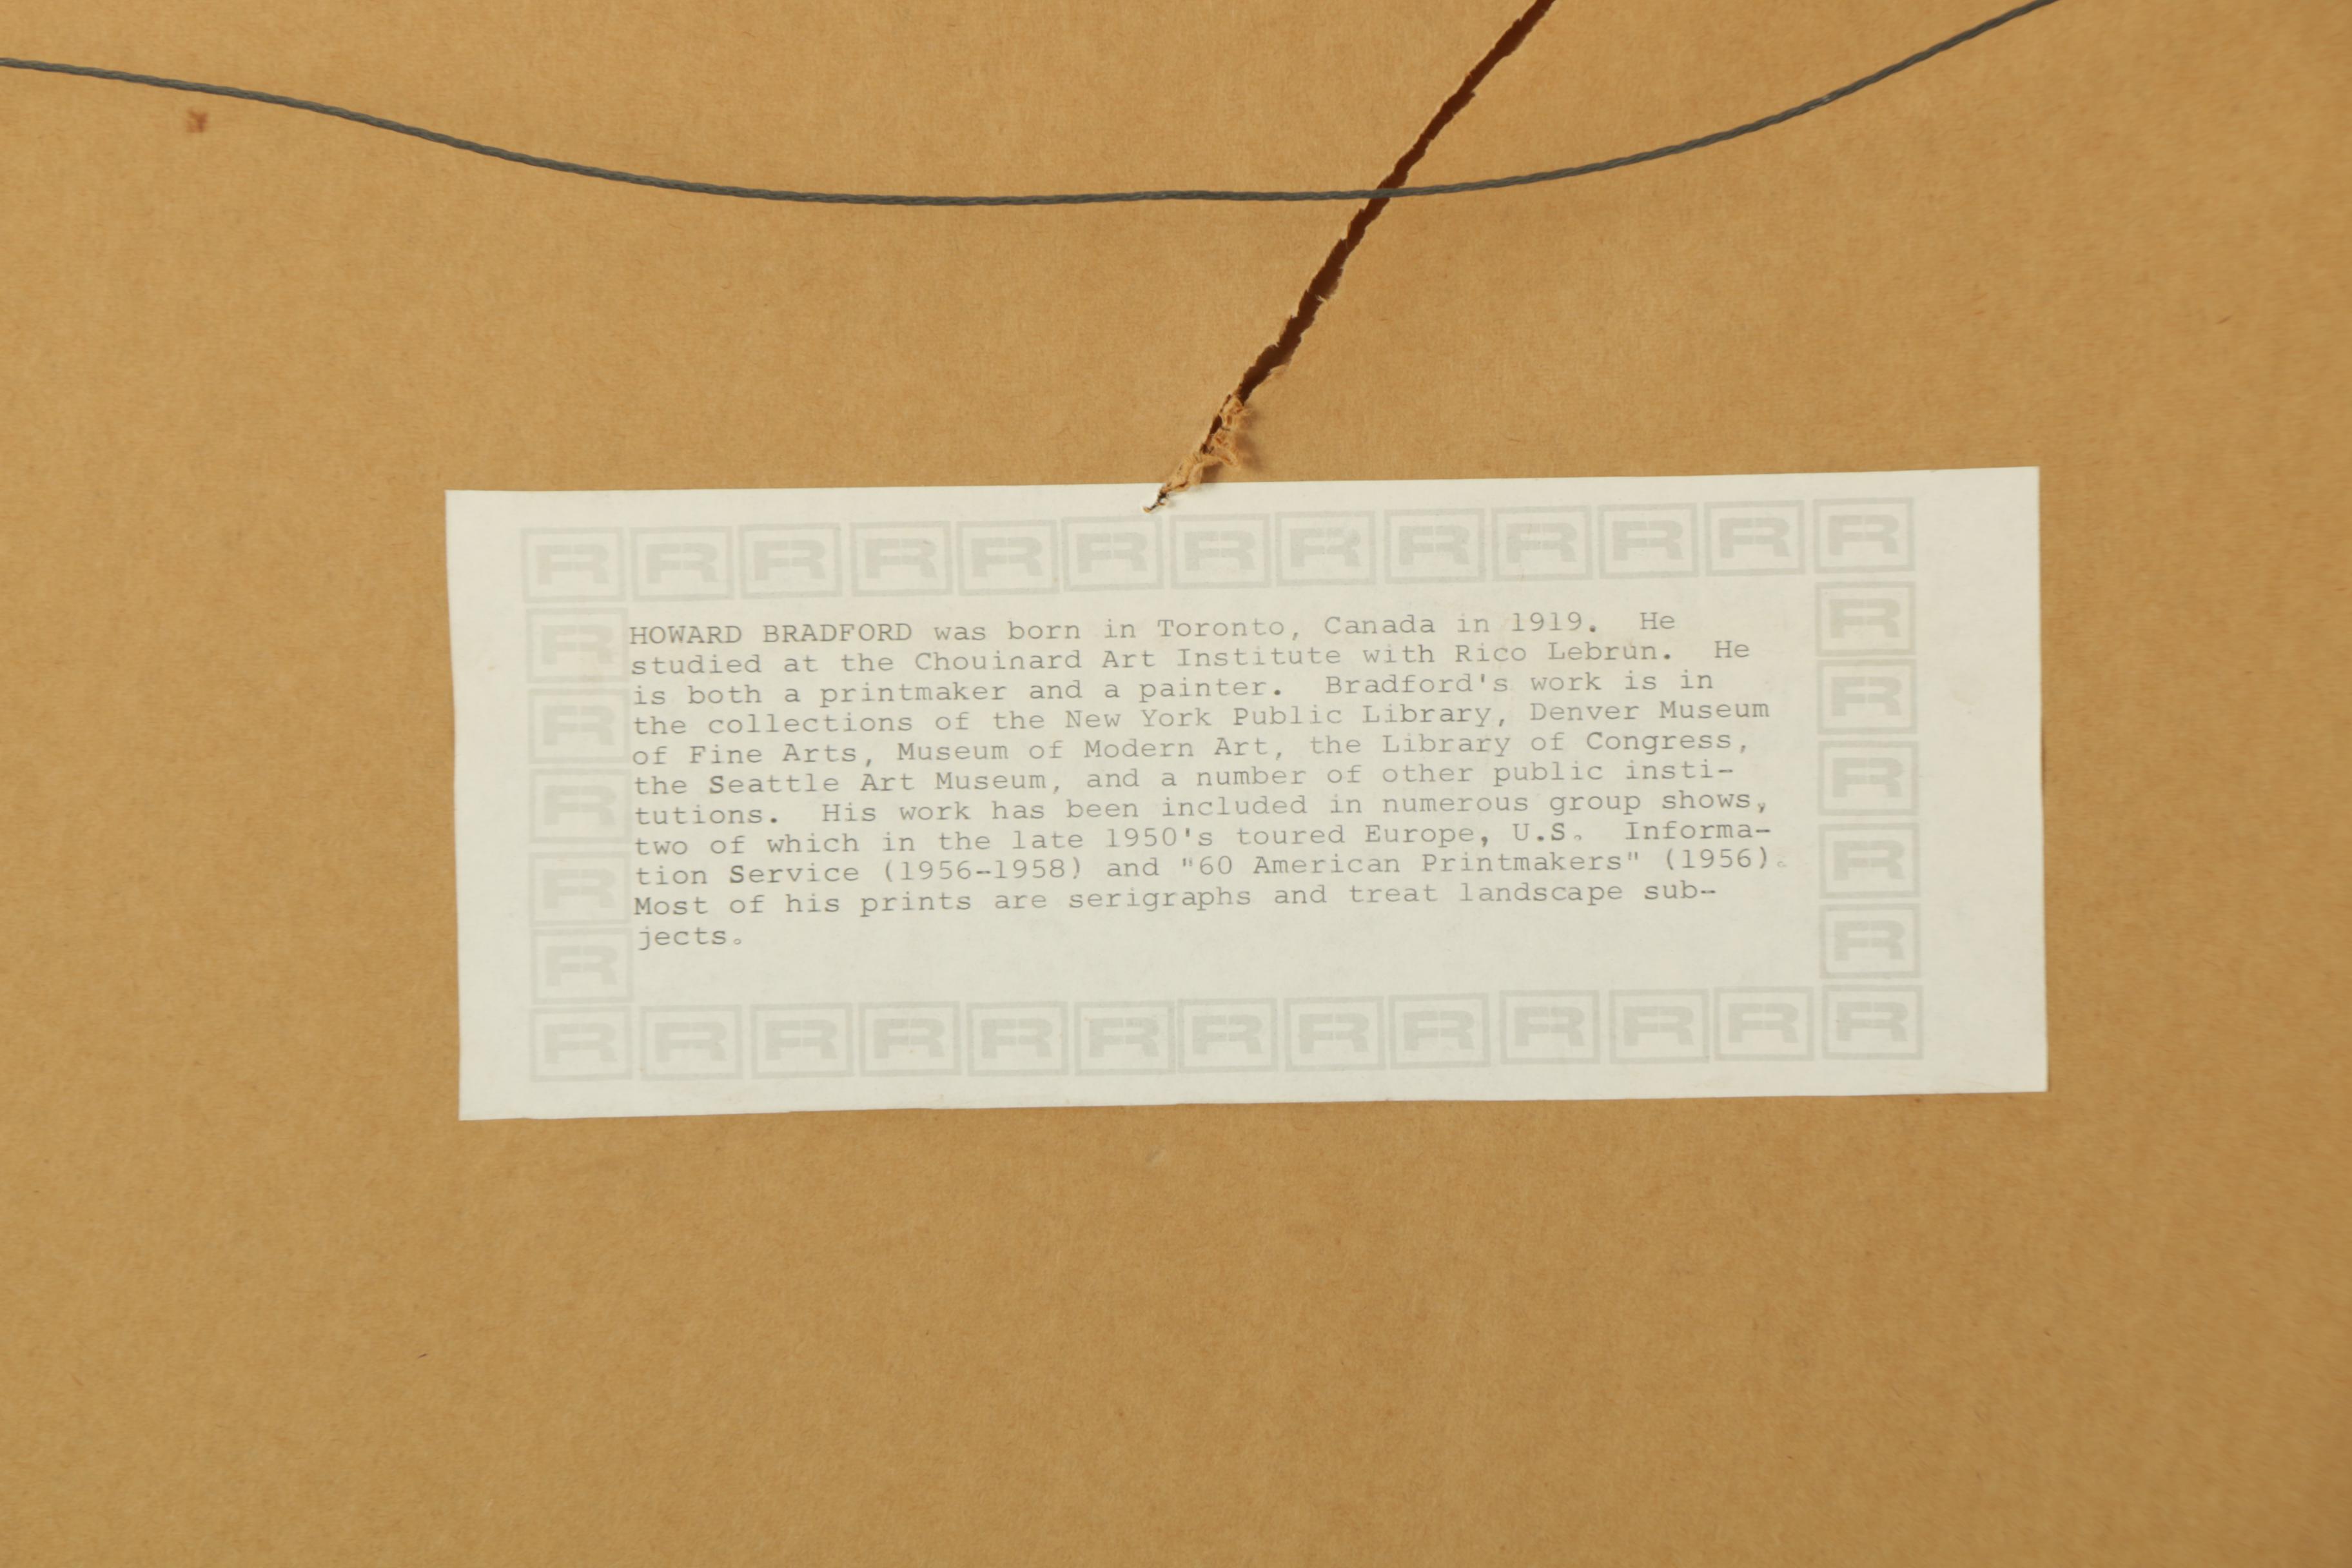 R R R R R R R R R R R R R
HOWARD BRADFORD was born in Toronto, Canada in 1919.  He
studied at the Chouinard Art Institute with Rico Lebrun.  He
is both a printmaker and a painter.  Bradford's work is in
the collections of the New York Public Library, Denver Museum
of Fine Arts, Museum of Modern Art, the Library of Congress,
the Seattle Art Museum, and a number of other public insti-
tutions.  His work has been included in numerous group shows,
two of which in the late 1950's toured Europe, U.S.  Informa-
tion Service (1956-1958) and "60 American Printmakers" (1956).
Most of his prints are serigraphs and treat landscape sub-
jects.
R R R R R R R R R R R R R